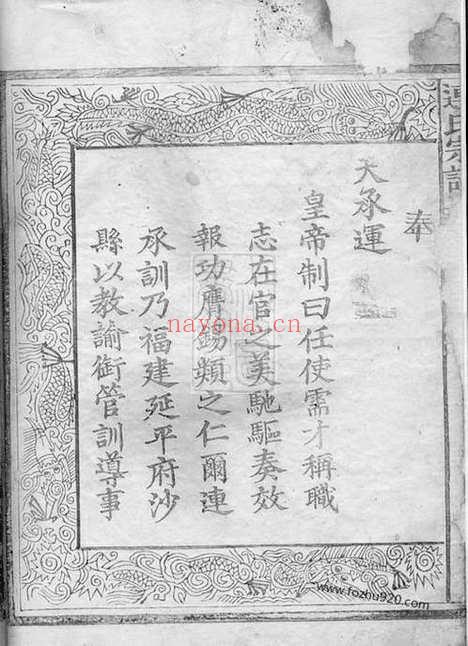 連氏宗譜
奉
天承運
皇帝制曰任使需才稱職
志在官之美馳驅奏效
報功膺錫類之仁爾連
承訓乃福建延平府沙
縣以教諭銜管訓導事
nayona.cn
www.fozhu920.com